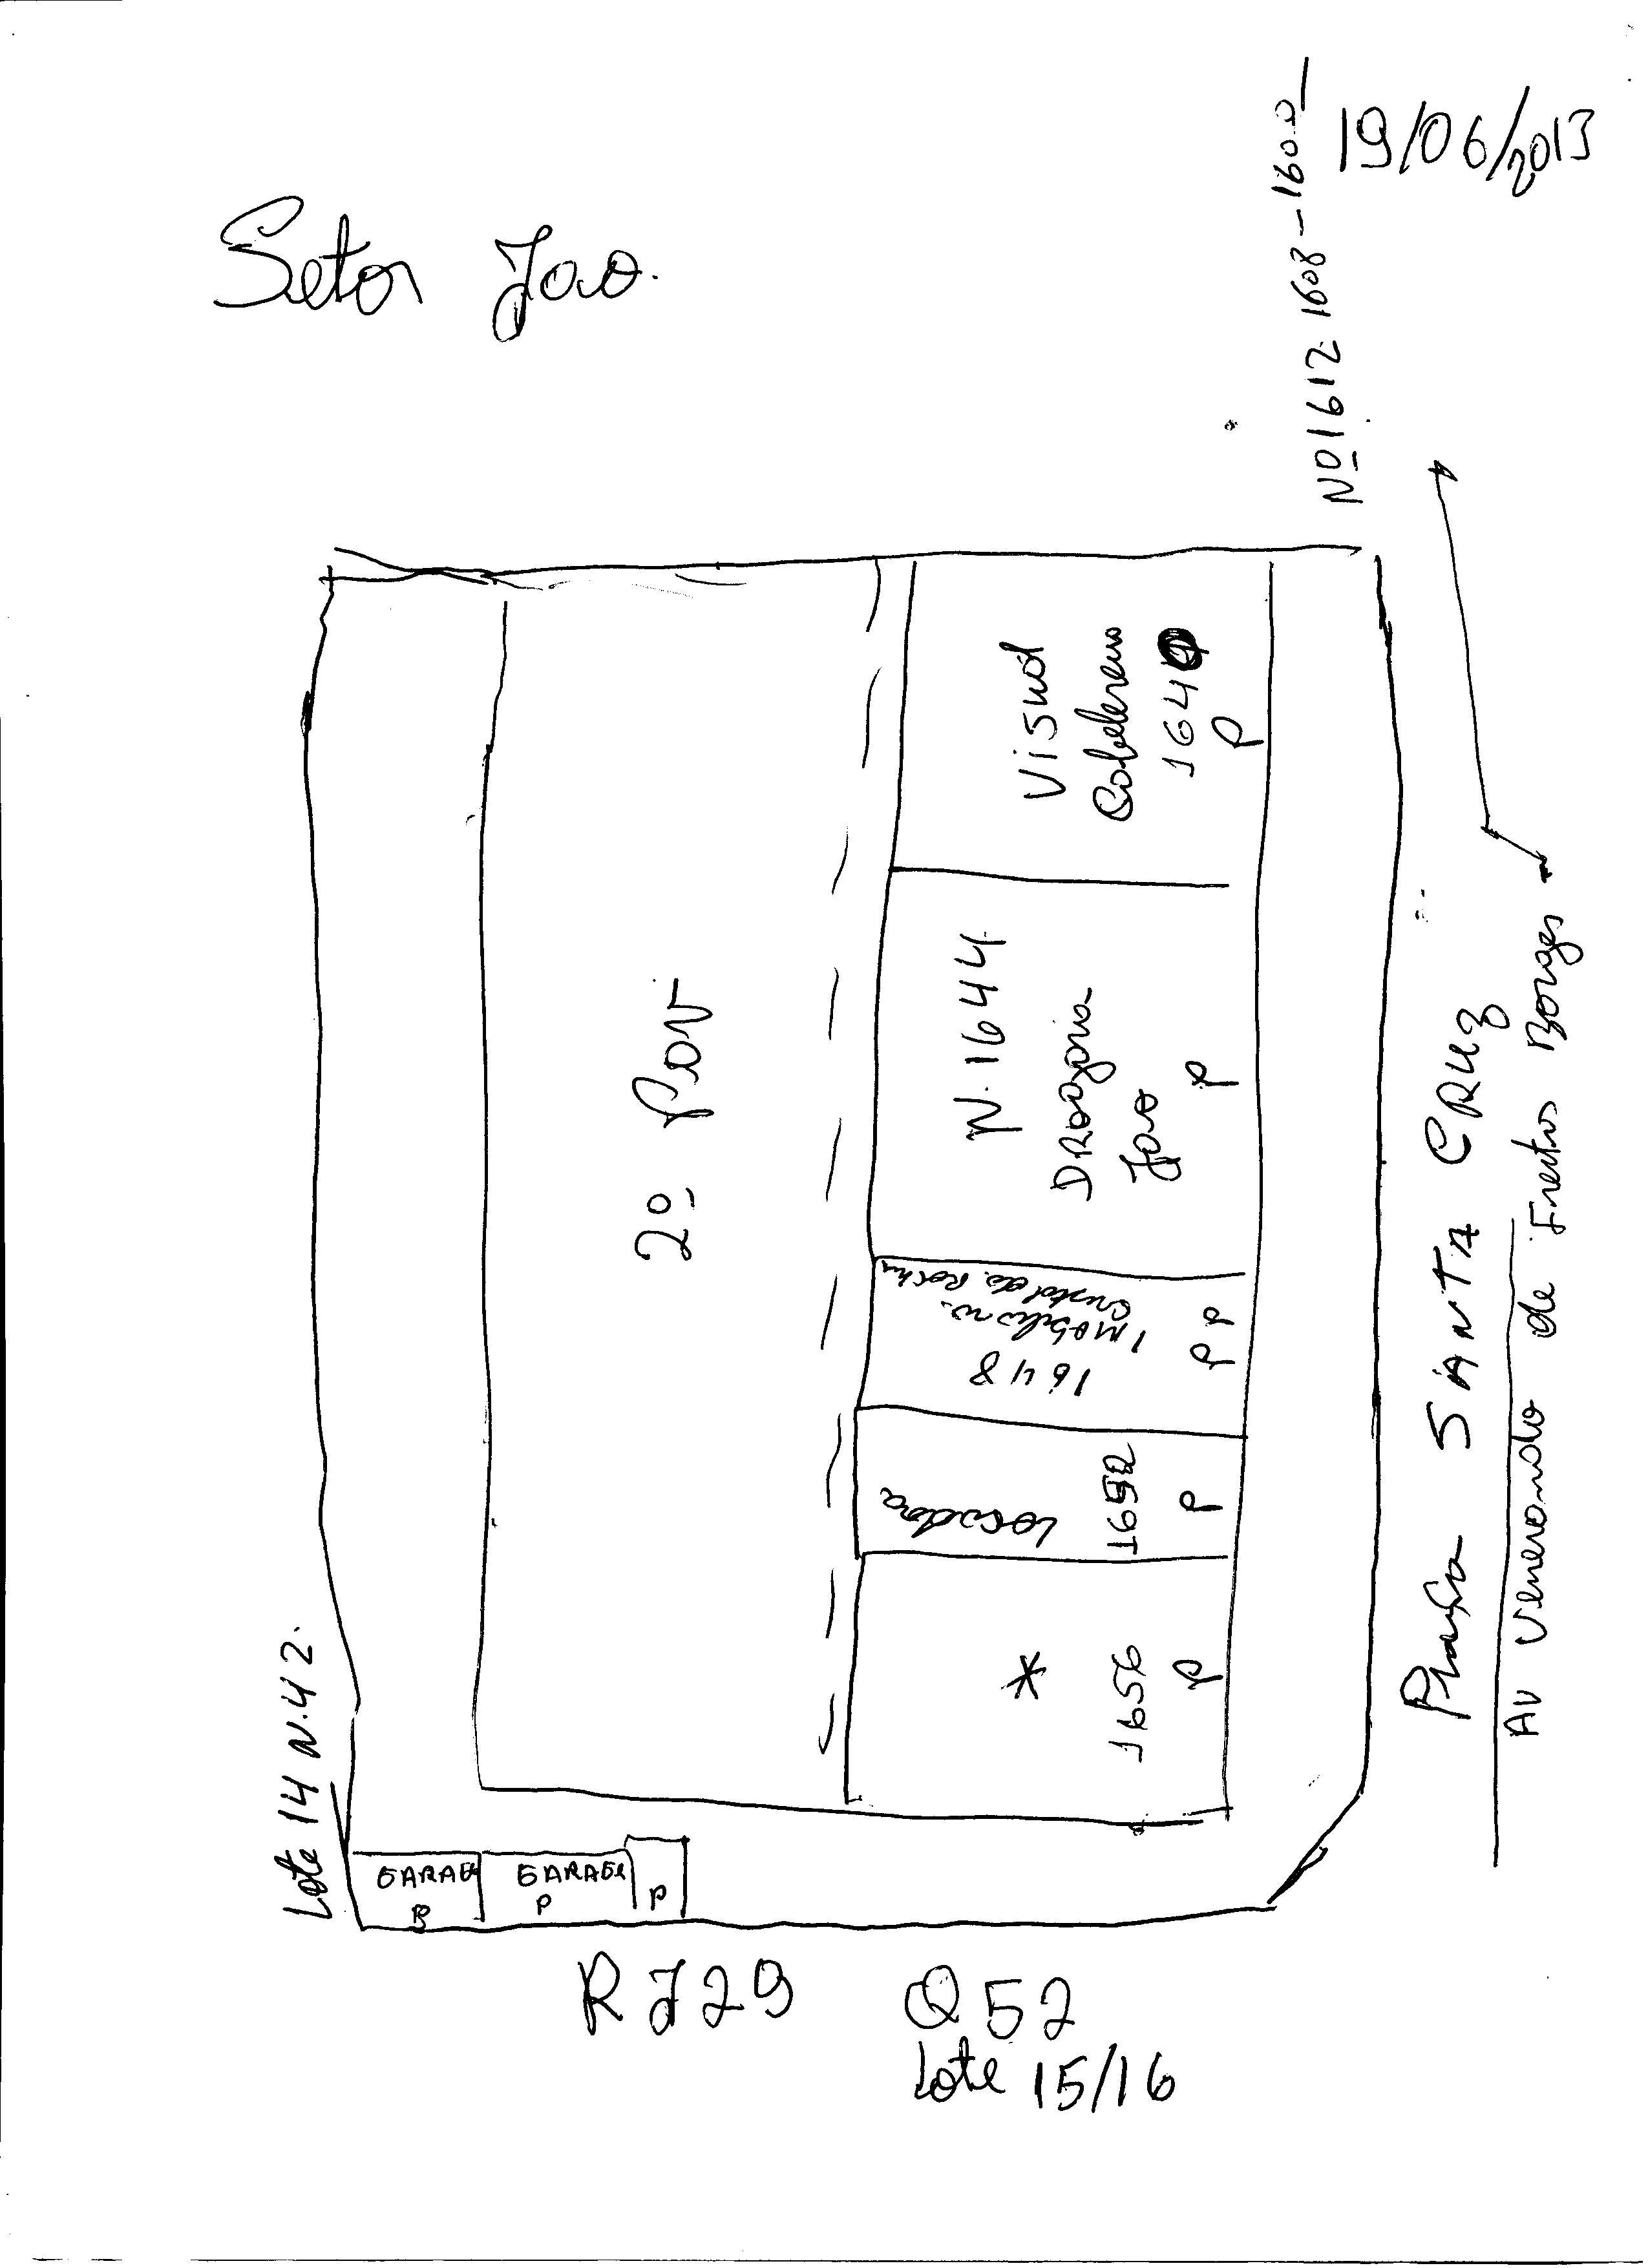 19/06/2013
Setor Jao.
Nº 1612 1608-1600
Visual
1640
P
N. 1644
DRogaria
Jao
P
2º Pav
1648
Imobiliaria
Cristal da Rocha
P P
Locadora
1652
P
*
1656
P
Lote 14 N.42.
GARAGE
P
GARAGE
P
P
Praça SANTA CRUZ
AV Venerando de Freitas Borges
R J29 Q 52
Lote 15/16